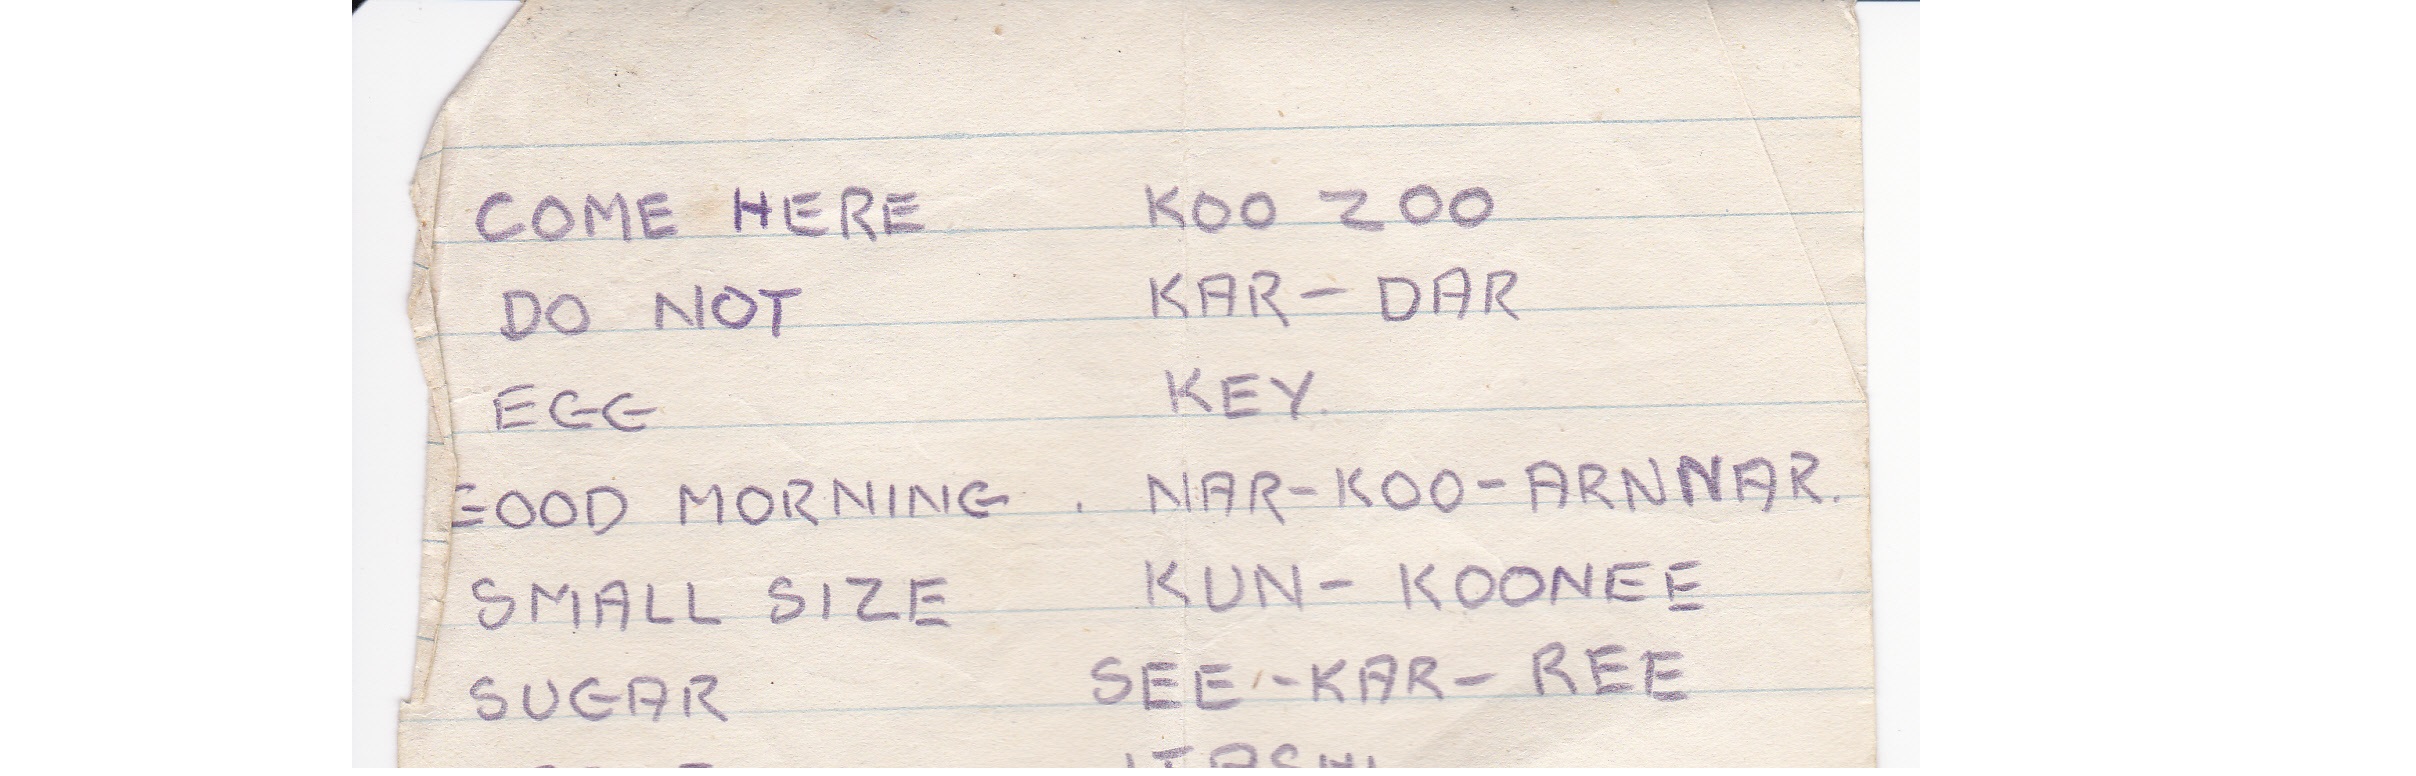 COME HERE KOO ZOO
DO NOT KAR-DAR
EGG KEY.
GOOD MORNING . NAR-KOO-ARNNAR.
SMALL SIZE KUN-KOONEE
SUGAR SEE-KAR-REE
ITASHI